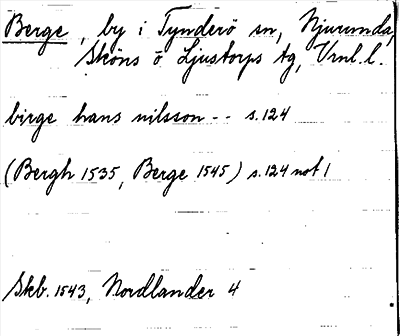 Berge, by i Tynderö sn, Njurunda,
Sköns o Ljustorps tg, Vrnl. l.
birge hans nilsson -- s. 124
(Bergh 1535, Berge 1545) s. 124 not 1
Skb. 1543, Nordlander 4